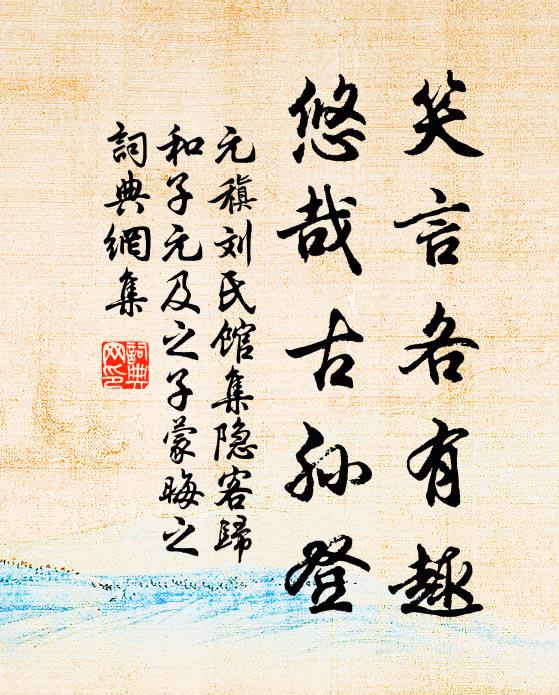 笑言各有趣
悠哉古孙登
元稹刘氏馆集隐客歸
和子元及之子蒙晦之
詞典網集
詞典
网印